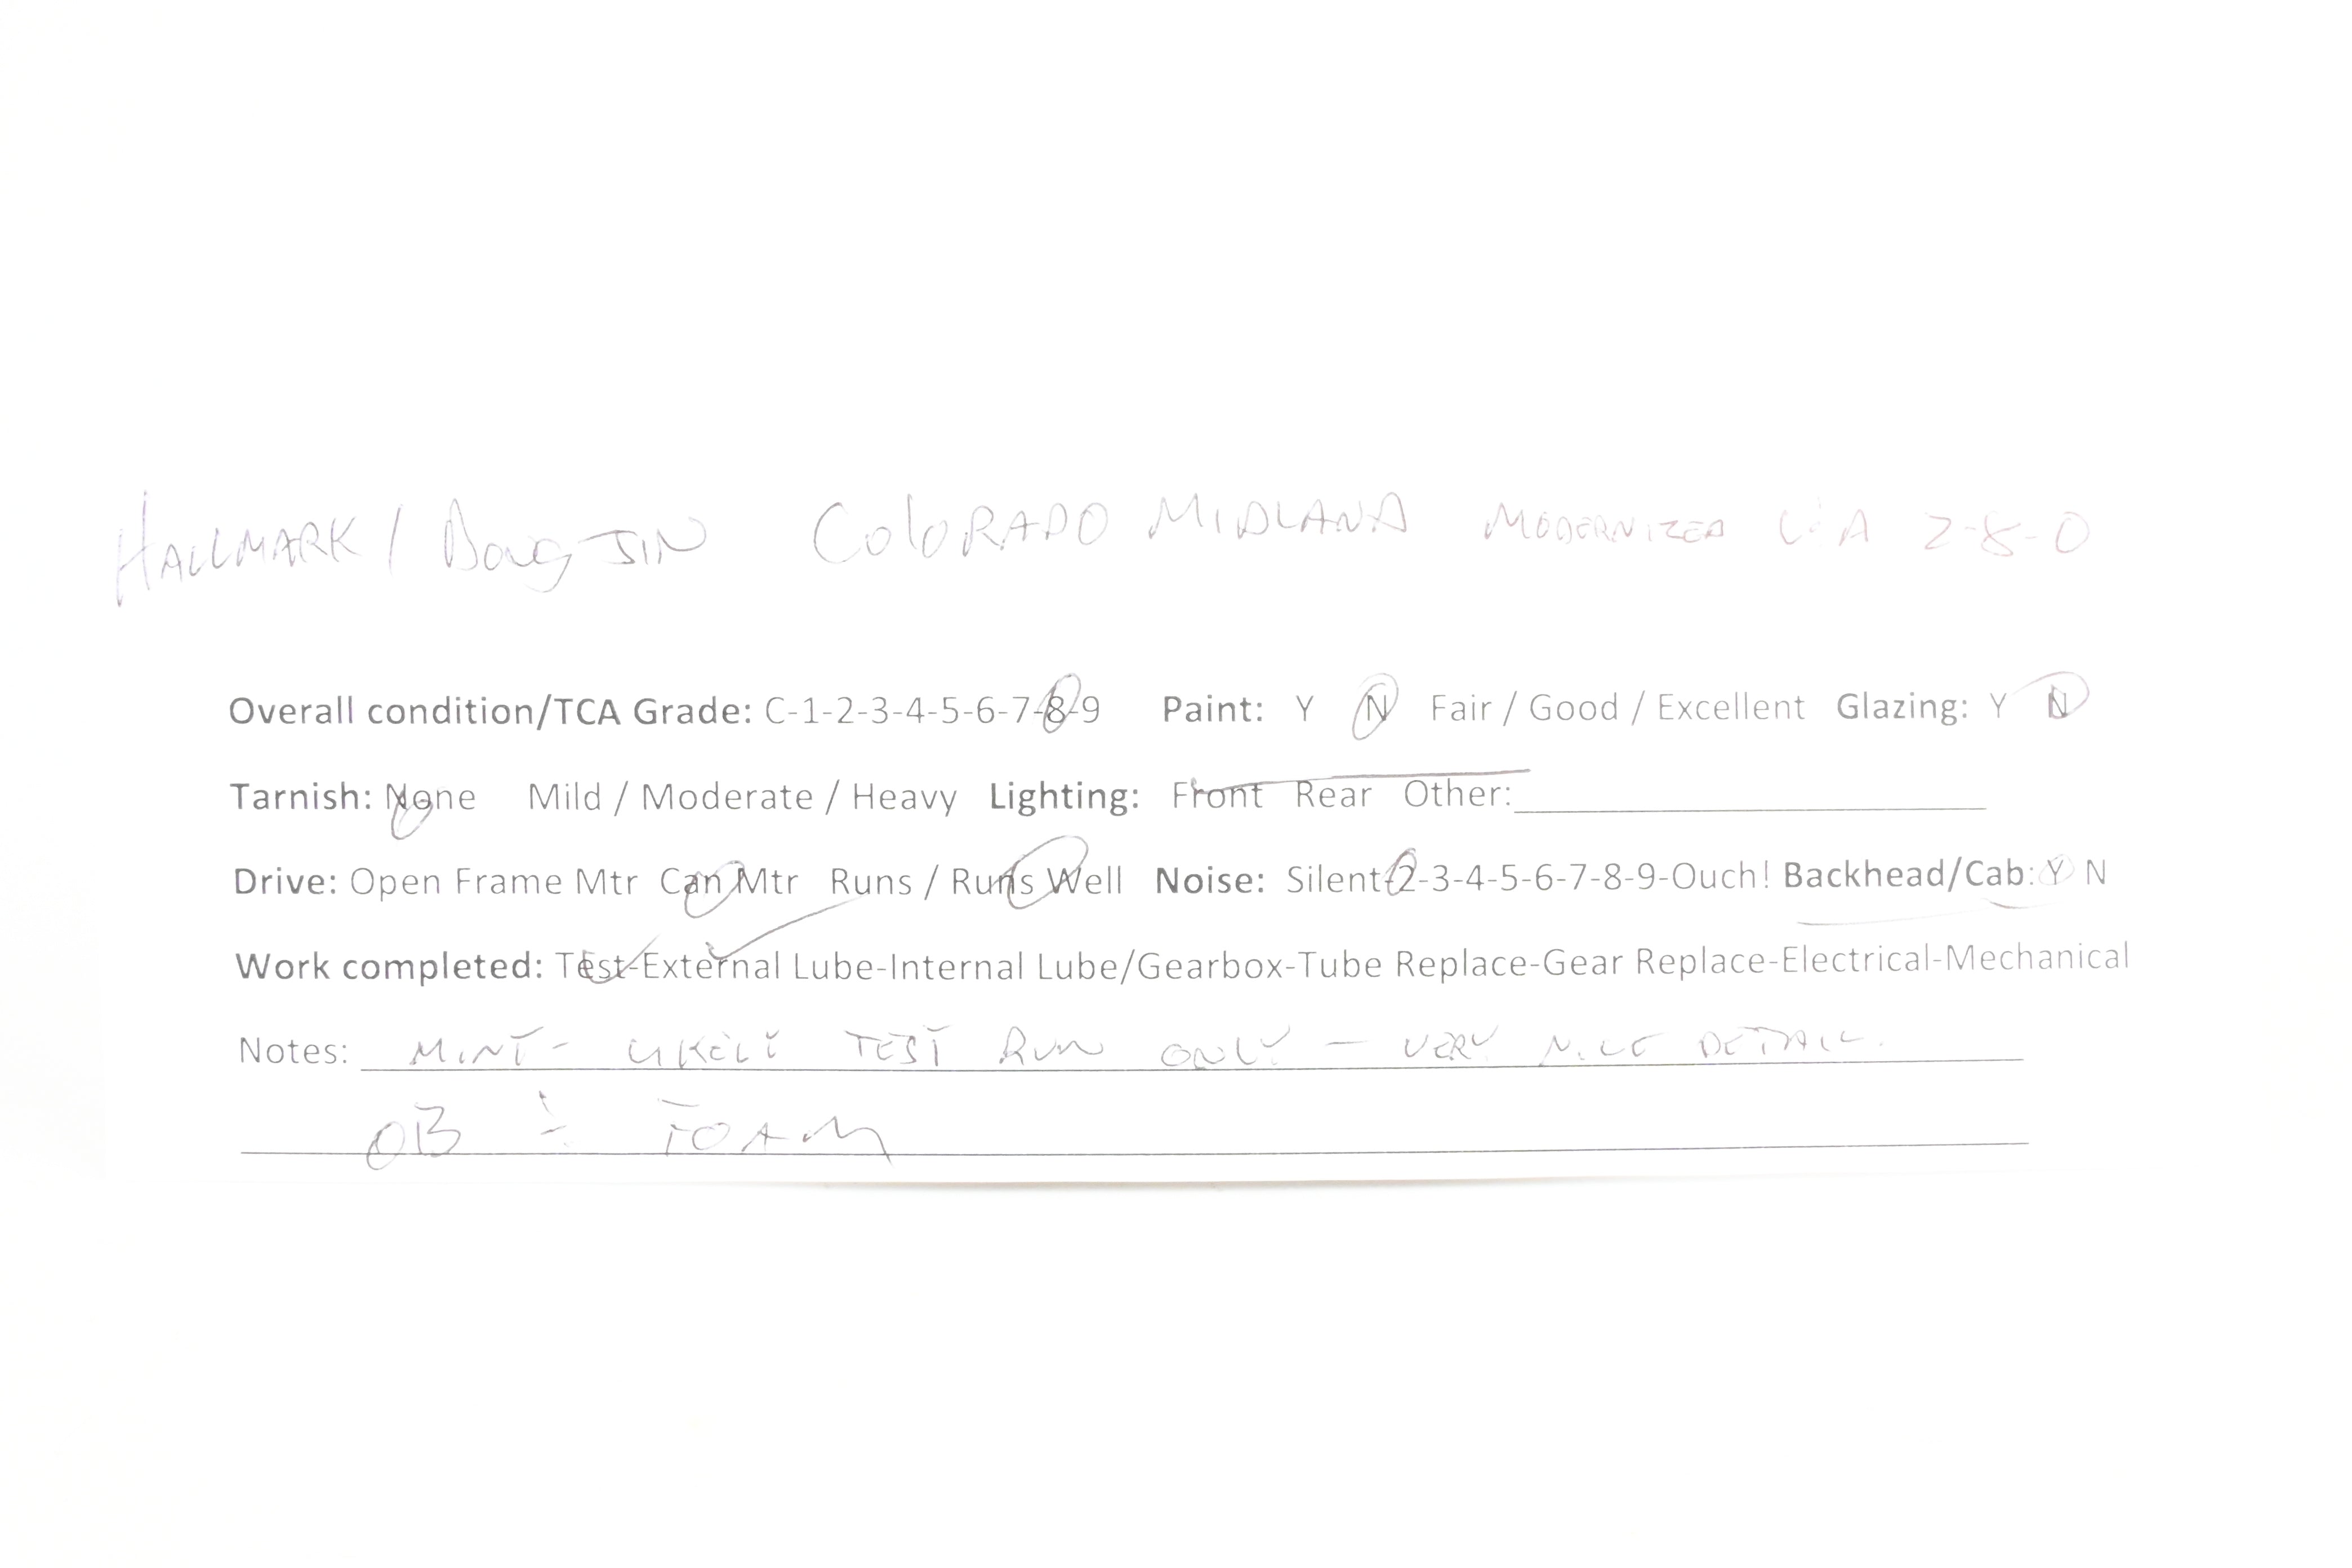 HALLMARK / DONG JIN COLORADO MIDLAND MODERNIZED 2-8-0
Overall condition/TCA Grade: C-1-2-3-4-5-6-7-8-9 Paint: Y N Fair / Good / Excellent Glazing: Y N
Tarnish: None Mild / Moderate / Heavy Lighting: Front Rear Other:
Drive: Open Frame Mtr Can Mtr Runs / Runs Well Noise: Silent-2-3-4-5-6-7-8-9-Ouch! Backhead/Cab: Y N
Work completed: Test-External Lube-Internal Lube/Gearbox-Tube Replace-Gear Replace-Electrical-Mechanical
Notes: MINT - LIKELY TEST RUN ONLY - VERY NICE DETAIL.
OB FOAM